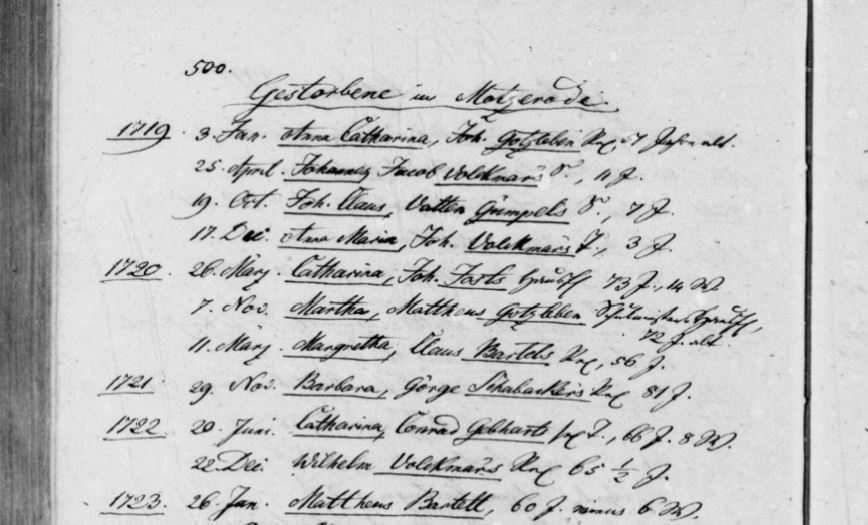 500.
Gestorbene in Motzerode.
1719. 3. Jan. Anna Catharina, Joh. Gotzleben alt.
25. April. Johannes Jacob Volckmars S., 11 J.
19. Oct. Joh. Claus, Valten Gümpels S., 7 J.
17. Dec. Anna Maria, Joh. Volckmars T., 3 J.
1720. 26. Marz. Catharina, Joh. 73 J., 14 W.
7. Nov. Martha, Mattheus Gotzleben
72 J. alt.
11. Marz. Margretha, Claus Bartels 56 J.
1721. 29. Nov. Barbara, Görge Schabackers 81 J.
1722. 20. Juni. Catharina, Conrad Gebhards T., 66 J. 8 W.
22 Dec. Wilhelm Volckmars 65 ½ J.
1723. 26. Jan. Mattheus Bartell, 60 J. minus 6 W.